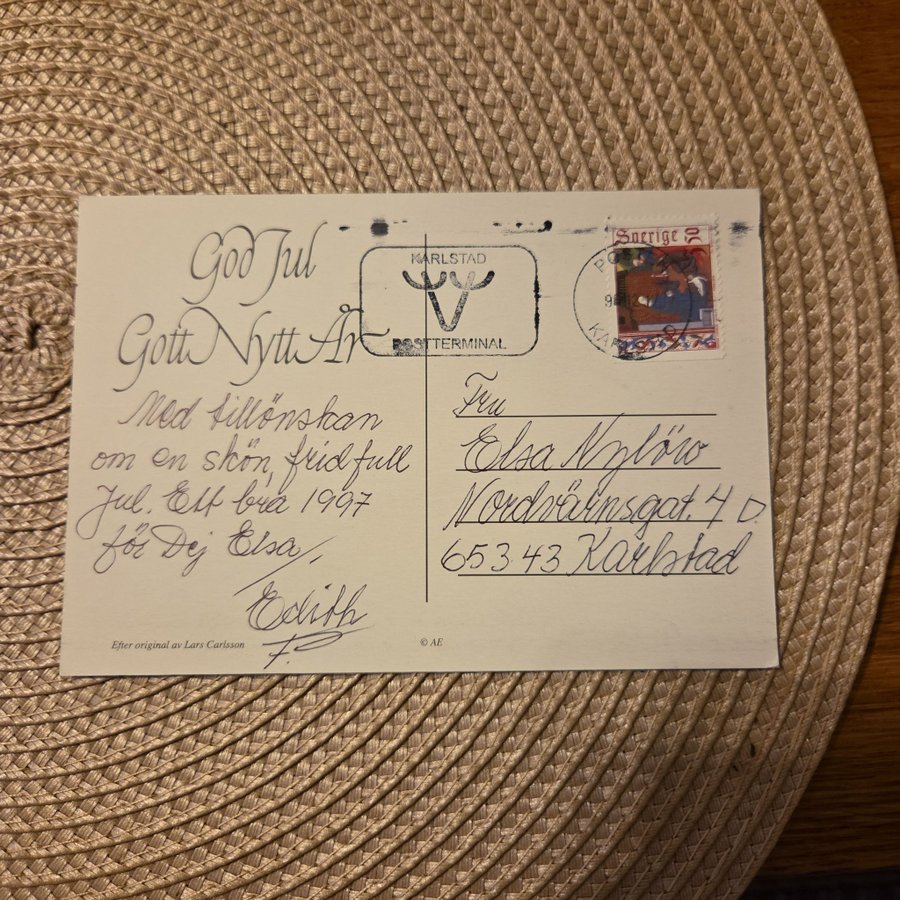 God Jul
Gott Nytt År
Med tillönskan
om en skön, fridfull
Jul. Ett bra 1997
för Dej Elsa
Edith
F.
Efter original av Lars Carlsson
© AE
KARLSTAD
POSTTERMINAL
Sverige
Fru
Elsa Nylöw
Nordvärnsgat. 4 D.
653 43 Karlstad